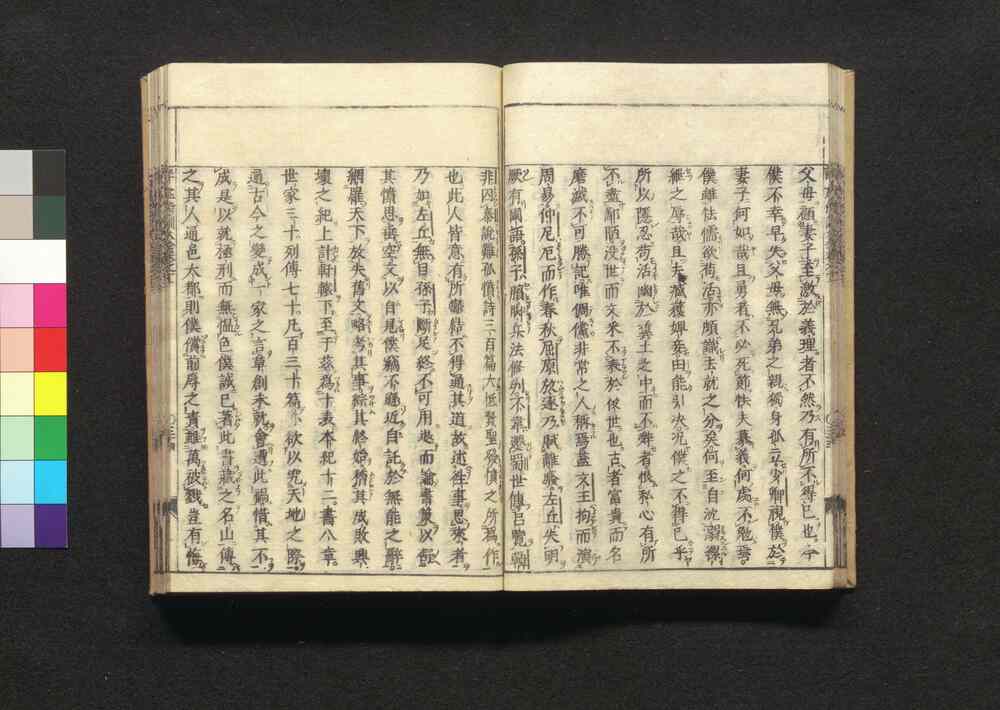 父母顧妻子至激於義理者不然乃有所不得已也今
僕不幸早失父母無兄弟之親獨身孤立少卿視僕於
妻子何如哉且勇者不必死節怯夫慕義何處不勉焉
僕雖怯懦欲苟活亦頗識去就之分矣何至自沈溺縲
紲之辱哉且夫臧獲婢妾由能引决况僕之不得已乎
所以隱忍苟活幽於糞土之中而不辭者恨私心有所
不盡鄙陋没世而文采不表於後世也古者富貴而名
磨滅不可勝記唯倜儻非常之人稱焉蓋文王拘而演
周易仲尼厄而作春秋屈原放逐乃賦離騷左丘失明
厥有國語孫子臏脚兵法修列不韋遷蜀世傳呂覽韓
非囚秦說難孤憤詩三百篇大底賢聖發憤之所爲作
也此人皆意有所鬱結不得通其道故述往事思來者
乃如左丘無目孫子斷足終不可用退而論書策以舒
其憤思垂空文以自見僕竊不遜近自託於無能之辭
網羅天下放失舊文略考其事綜其終始稽其成敗興
壞之紀上計軒轅下至于茲爲十表本紀十二書八章
世家三十列傳七十凡百三十篇亦欲以究天地之際
通古今之變成一家之言草創未就會遭此禍惜其不
成是以就極刑而無慍色僕誠已著此書藏之名山傳
之其人通邑大都則僕償前辱之責雖萬被戮豈有悔